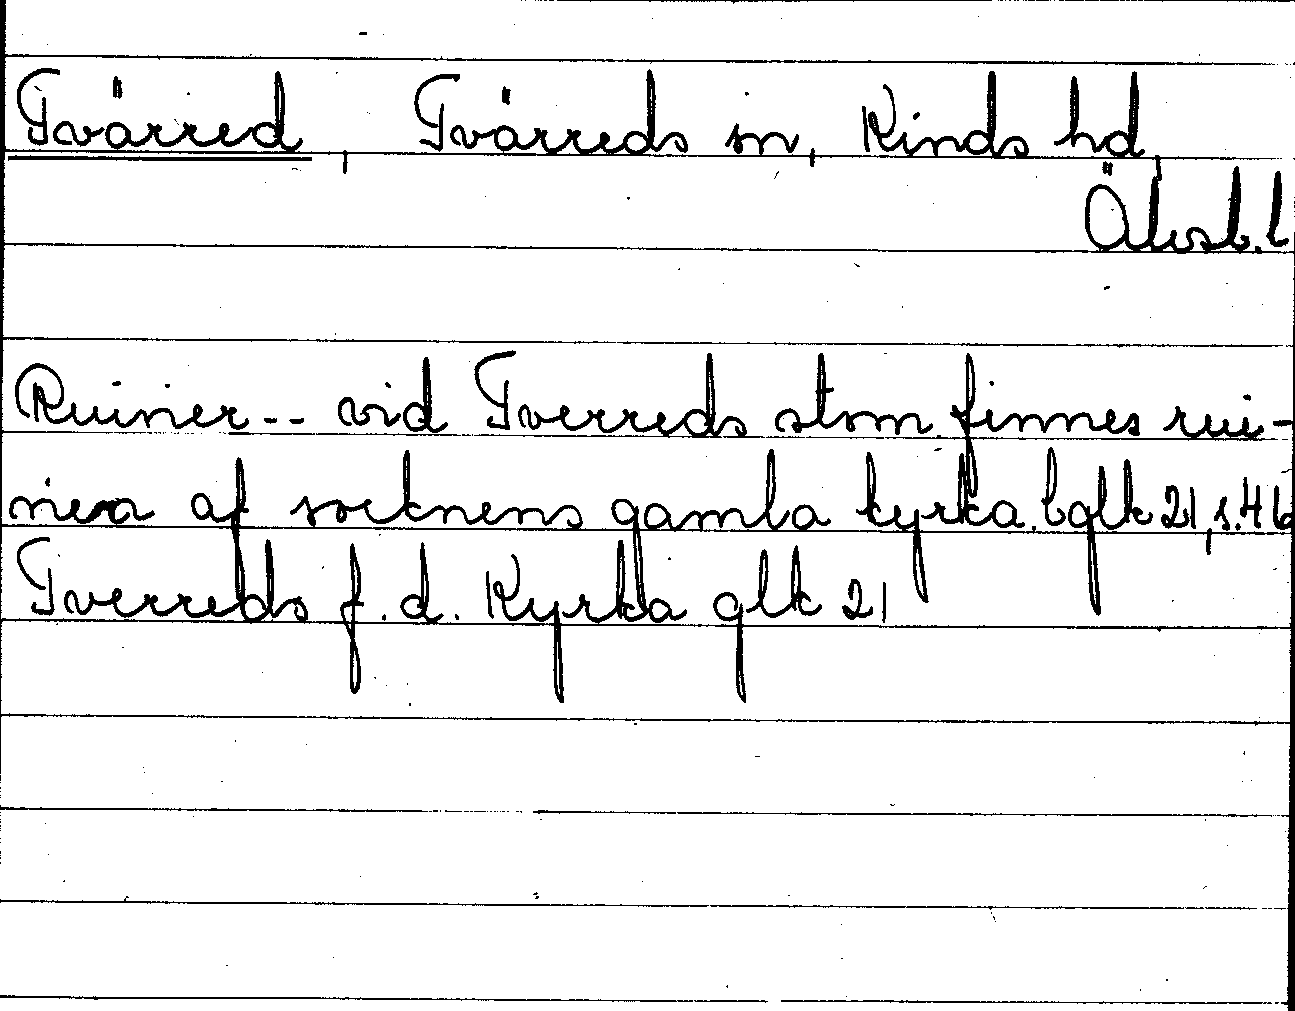 Tvärred, Tvärreds sn, Kinds hd,
Älvsb.l
Ruiner -- vid Tverreds stom finnes rui-
nera af socknens gamla kyrka. bglk 21, s. 46
Tverreds f.d. Kyrka glk 21